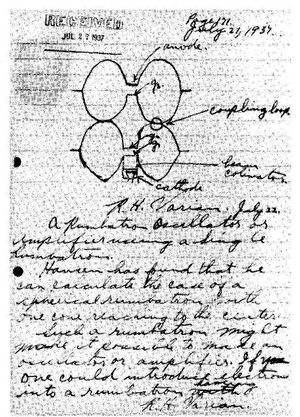 Page 71.
RECEIVED
July 21, 1937.
JUL 27 1937
anode.
coupling loop
beam
cathode
R. H. Varian. July 22.
A Rumbatron Oscillator or
Amplifier using a single
rumbatron.
Hansen has found that he
can calculate the case of a
spherical rumbatron with
one cone reaching to the center.
Such a rumbatron might
make it possible to make an
oscillator or amplifier. If
one could introduce electrons
into a rumbatron
R. H. Varian.